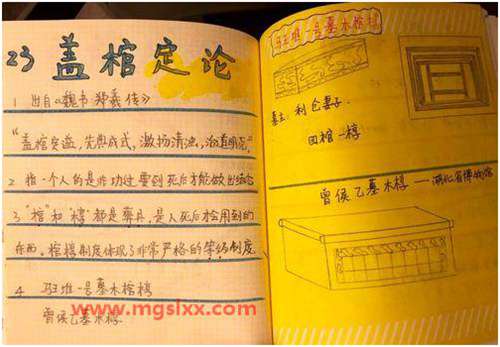 23 盖棺定论
1 出自《魏书·郑羲传》
"盖棺定谥，先典成式，激扬清浊，治道明范"
2 指一个人的是非功过要到死后才能做出结论
3 "棺"和"椁"都是葬具，是人死后才会用到的
东西。棺椁制度体现了非常严格的等级制度。
4 马王堆一号墓木棺椁
曾侯乙墓木椁
马王堆一号墓木棺椁
墓主：利仓妻子
四棺一椁
曾侯乙墓木椁——湖北省博物馆
www.mgslxx.com